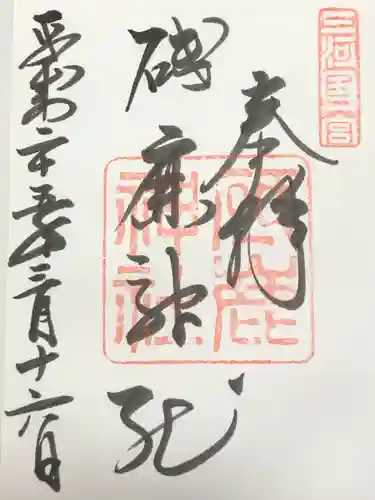 三河國二宮
奉拝
砥鹿神社
平成二十五年三月十六日